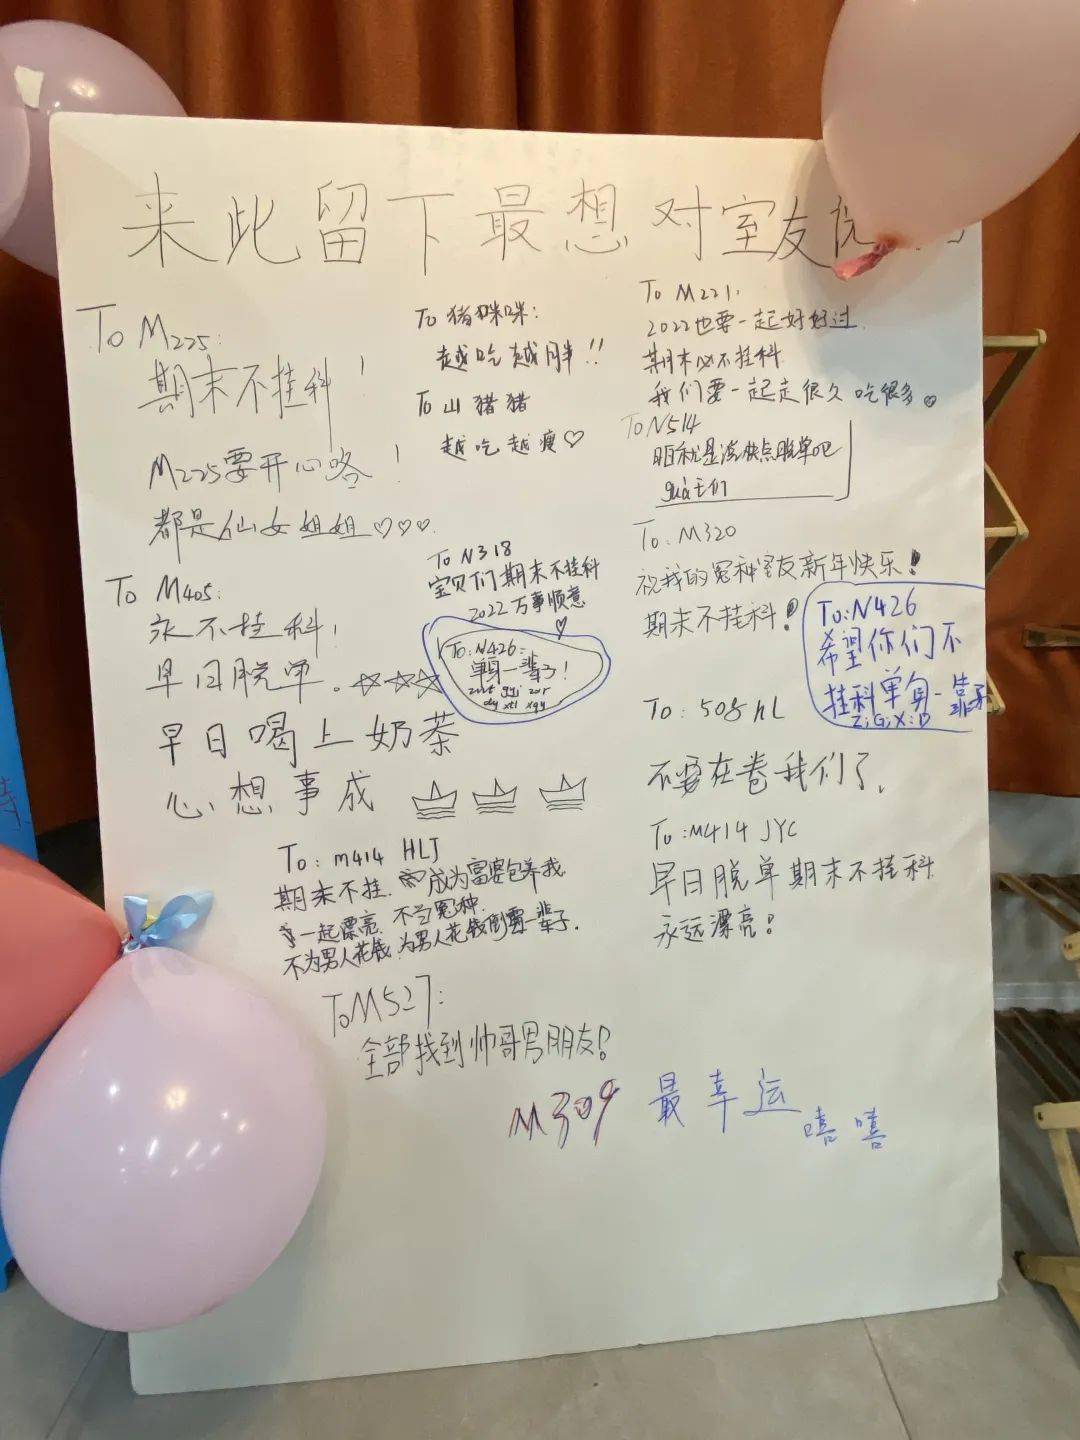 来此留下最想对室友说
To M225:
期末不挂科!
M225要开心咯!
都是仙女姐姐♡♡♡
To M405:
永不挂科!
早日脱单.☆☆☆
早日喝上奶茶
心想事成
To 猪咪咪:
越吃越胖!!
To 山猪猪
越吃越瘦♡
To N318
宝贝们期末不挂科
2022万事顺意
♡
To:N426:
单身一辈子!
gyi zor
xtl xgy
To M221.
2022也要一起好好过.
期末必不挂科
我们要一起走很久 吃很多♡
To N514
就是说快点脱单吧
们
To: M320
祝我的冤种室友新年快乐!
期末不挂科!
To:N426
希望你们不
挂科单身一辈子
Z;G;X;D
To: 508 hL
不要在卷我们了.
To:M414 JYC
早日脱单期末不挂科
永远漂亮!
To: M414 HLJ
期末不挂. 成为富婆包养我
一起漂亮. 不当冤种.
不为男人花钱.为男人花钱倒霉一辈子.
To M527:
全部找到帅哥男朋友!
M309 最幸运
嘻嘻